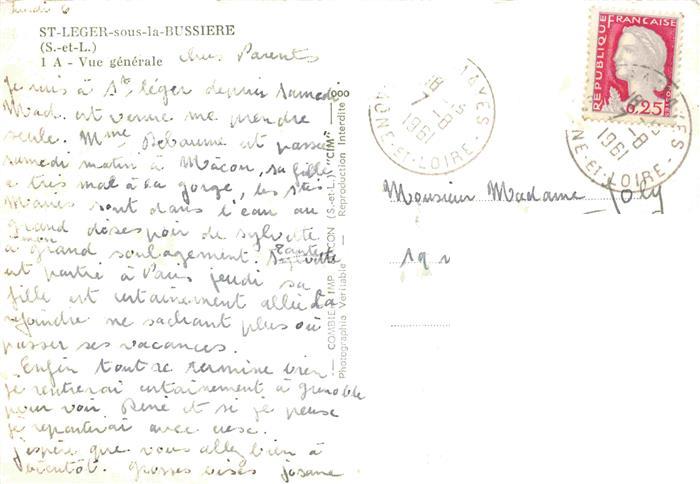 lundi 6
ST-LEGER-sous-la-BUSSIERE
(S.-et-L.)
1 A - Vue générale
Chers Parents
Je suis à St léger depuis samedi
Mad. est venue me prendre
seule. Mme Bebaume est passée
samedi matin à Mâcon, sa fille
a très mal à sa gorge, les Stes
Maries sont dans l'eau au
grand désespoir de sylvette
à mon grand soulagement. Tante
est partie à Paris jeudi sa
fille est certainement allée la
rejoindre ne sachant plus où
passer ses vacances.
Enfin tout se termine bien
je rentrerai certainement à grenoble
pour voir René et si je peux
je repartirai avec
j'espère que vous allez bien à
bientôt. grosses bises josane
COMBIER IMP. MACON (S.-et-L.) "CIM"
Photographie Véritable - Reproduction Interdite
REPUBLIQUE FRANCAISE
0,25
18 H
7 - 8
1961
SAONE-ET-LOIRE
18 H
7 - 8
1961
SAONE-ET-LOIRE
Monsieur Madame Joly